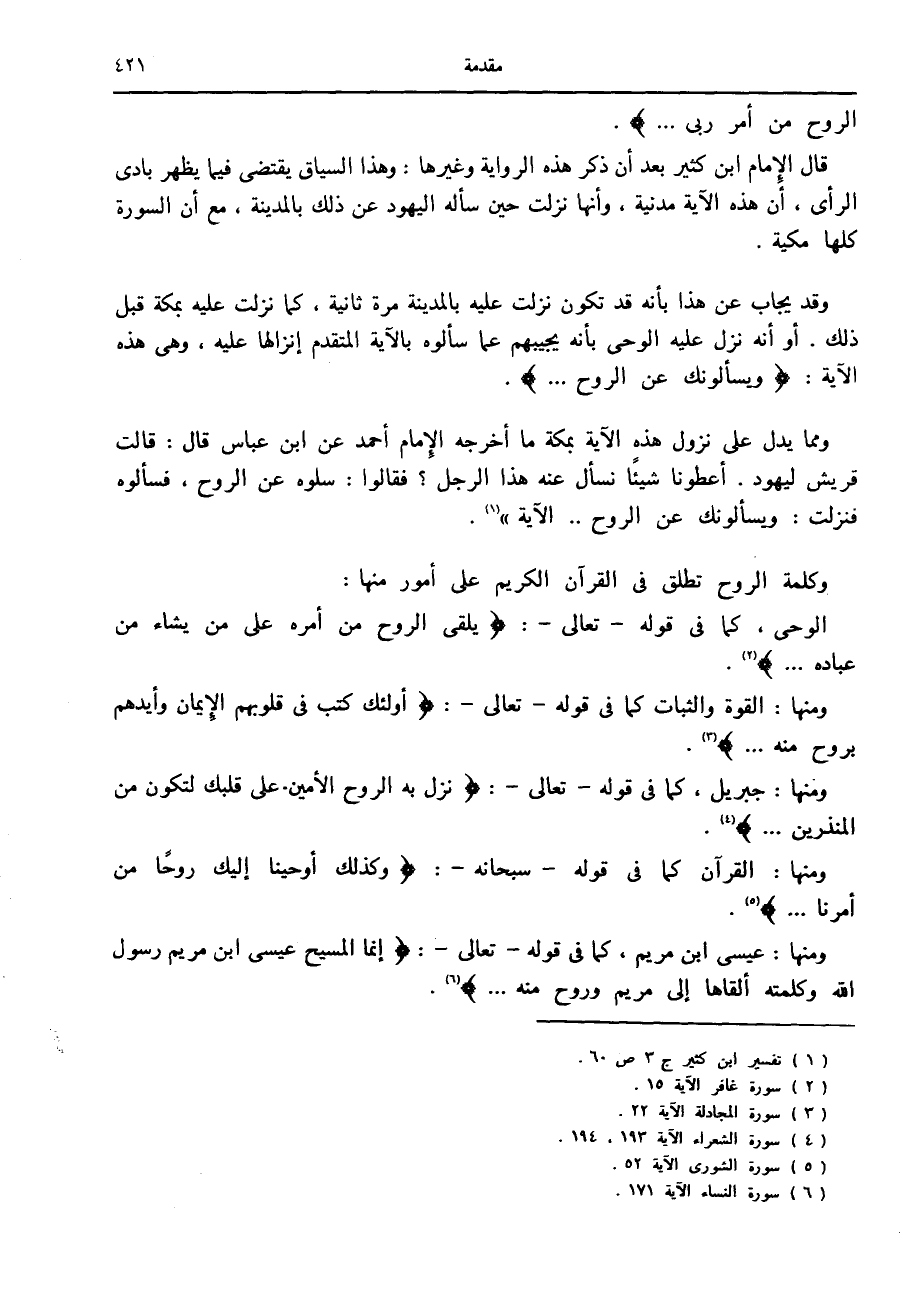 مقدمة ٤٢١
الروح من أمر ربى ... ﴾ .
قال الإمام ابن كثير بعد أن ذكر هذه الرواية وغيرها : وهذا السياق يقتضى فيما يظهر بادى
الرأى ، أن هذه الآية مدنية ، وأنها نزلت حين سأله اليهود عن ذلك بالمدينة ، مع أن السورة
كلها مكية .
وقد يجاب عن هذا بأنه قد تكون نزلت عليه بالمدينة مرة ثانية ، كما نزلت عليه بمكة قبل
ذلك . أو أنه نزل عليه الوحى بأنه يجيبهم عما سألوه بالآية المتقدم إنزالها عليه ، وهى هذه
الآية : ﴿ ويسألونك عن الروح ... ﴾ .
ومما يدل على نزول هذه الآية بمكة ما أخرجه الإمام أحمد عن ابن عباس قال : قالت
قريش ليهود . أعطونا شيئًا نسأل عنه هذا الرجل ؟ فقالوا : سلوه عن الروح ، فسألوه
فنزلت : ويسألونك عن الروح .. الآية »(١) .
وكلمة الروح تطلق فى القرآن الكريم على أمور منها :
الوحى ، كما فى قوله - تعالى - : ﴿ يلقى الروح من أمره على من يشاء من
عباده ... ﴾(٢) .
ومنها : القوة والثبات كما فى قوله - تعالى - : ﴿ أولئك كتب فى قلوبهم الإيمان وأيدهم
بروح منه ... ﴾(٣) .
ومنها : جبريل ، كما فى قوله - تعالى - : ﴿ نزل به الروح الأمين. على قلبك لتكون من
المنذرين ... ﴾(٤) .
ومنها : القرآن كما فى قوله - سبحانه - : ﴿ وكذلك أوحينا إليك روحًا من
أمرنا ... ﴾(٥) .
ومنها : عيسى ابن مريم ، كما فى قوله - تعالى - : ﴿ إنما المسيح عيسى ابن مريم رسول
الله وكلمته ألقاها إلى مريم وروح منه ... ﴾(٦) .
( ١ ) تفسير ابن كثير ج ٣ ص ٦٠ .
( ٢ ) سورة غافر الآية ١٥ .
( ٣ ) سورة المجادلة الآية ٢٢ .
( ٤ ) سورة الشعراء الآية ١٩٣ ، ١٩٤ .
( ٥ ) سورة الشورى الآية ٥٢ .
( ٦ ) سورة النساء الآية ١٧١ .